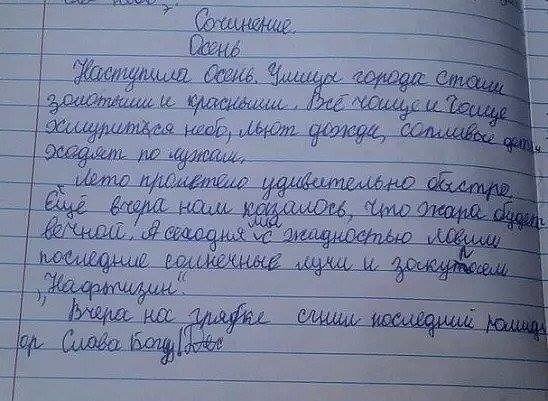 Сочинение.
Осень
Наступила Осень. Улицы города стали
золотыми и красными. Всё чаще и чаще
хмурится небо, льют дожди, сопливые дети
ходят по лужам.
Лето пролетело удивительно быстро.
Ещё вчера нам казалось, что жара будет
вечной. А сегодня мы с жадностью ловим
последние солнечные лучи и закупаем
„Нафтизин".
Вчера на грядке сгнил последний помид
ор Слава Богу